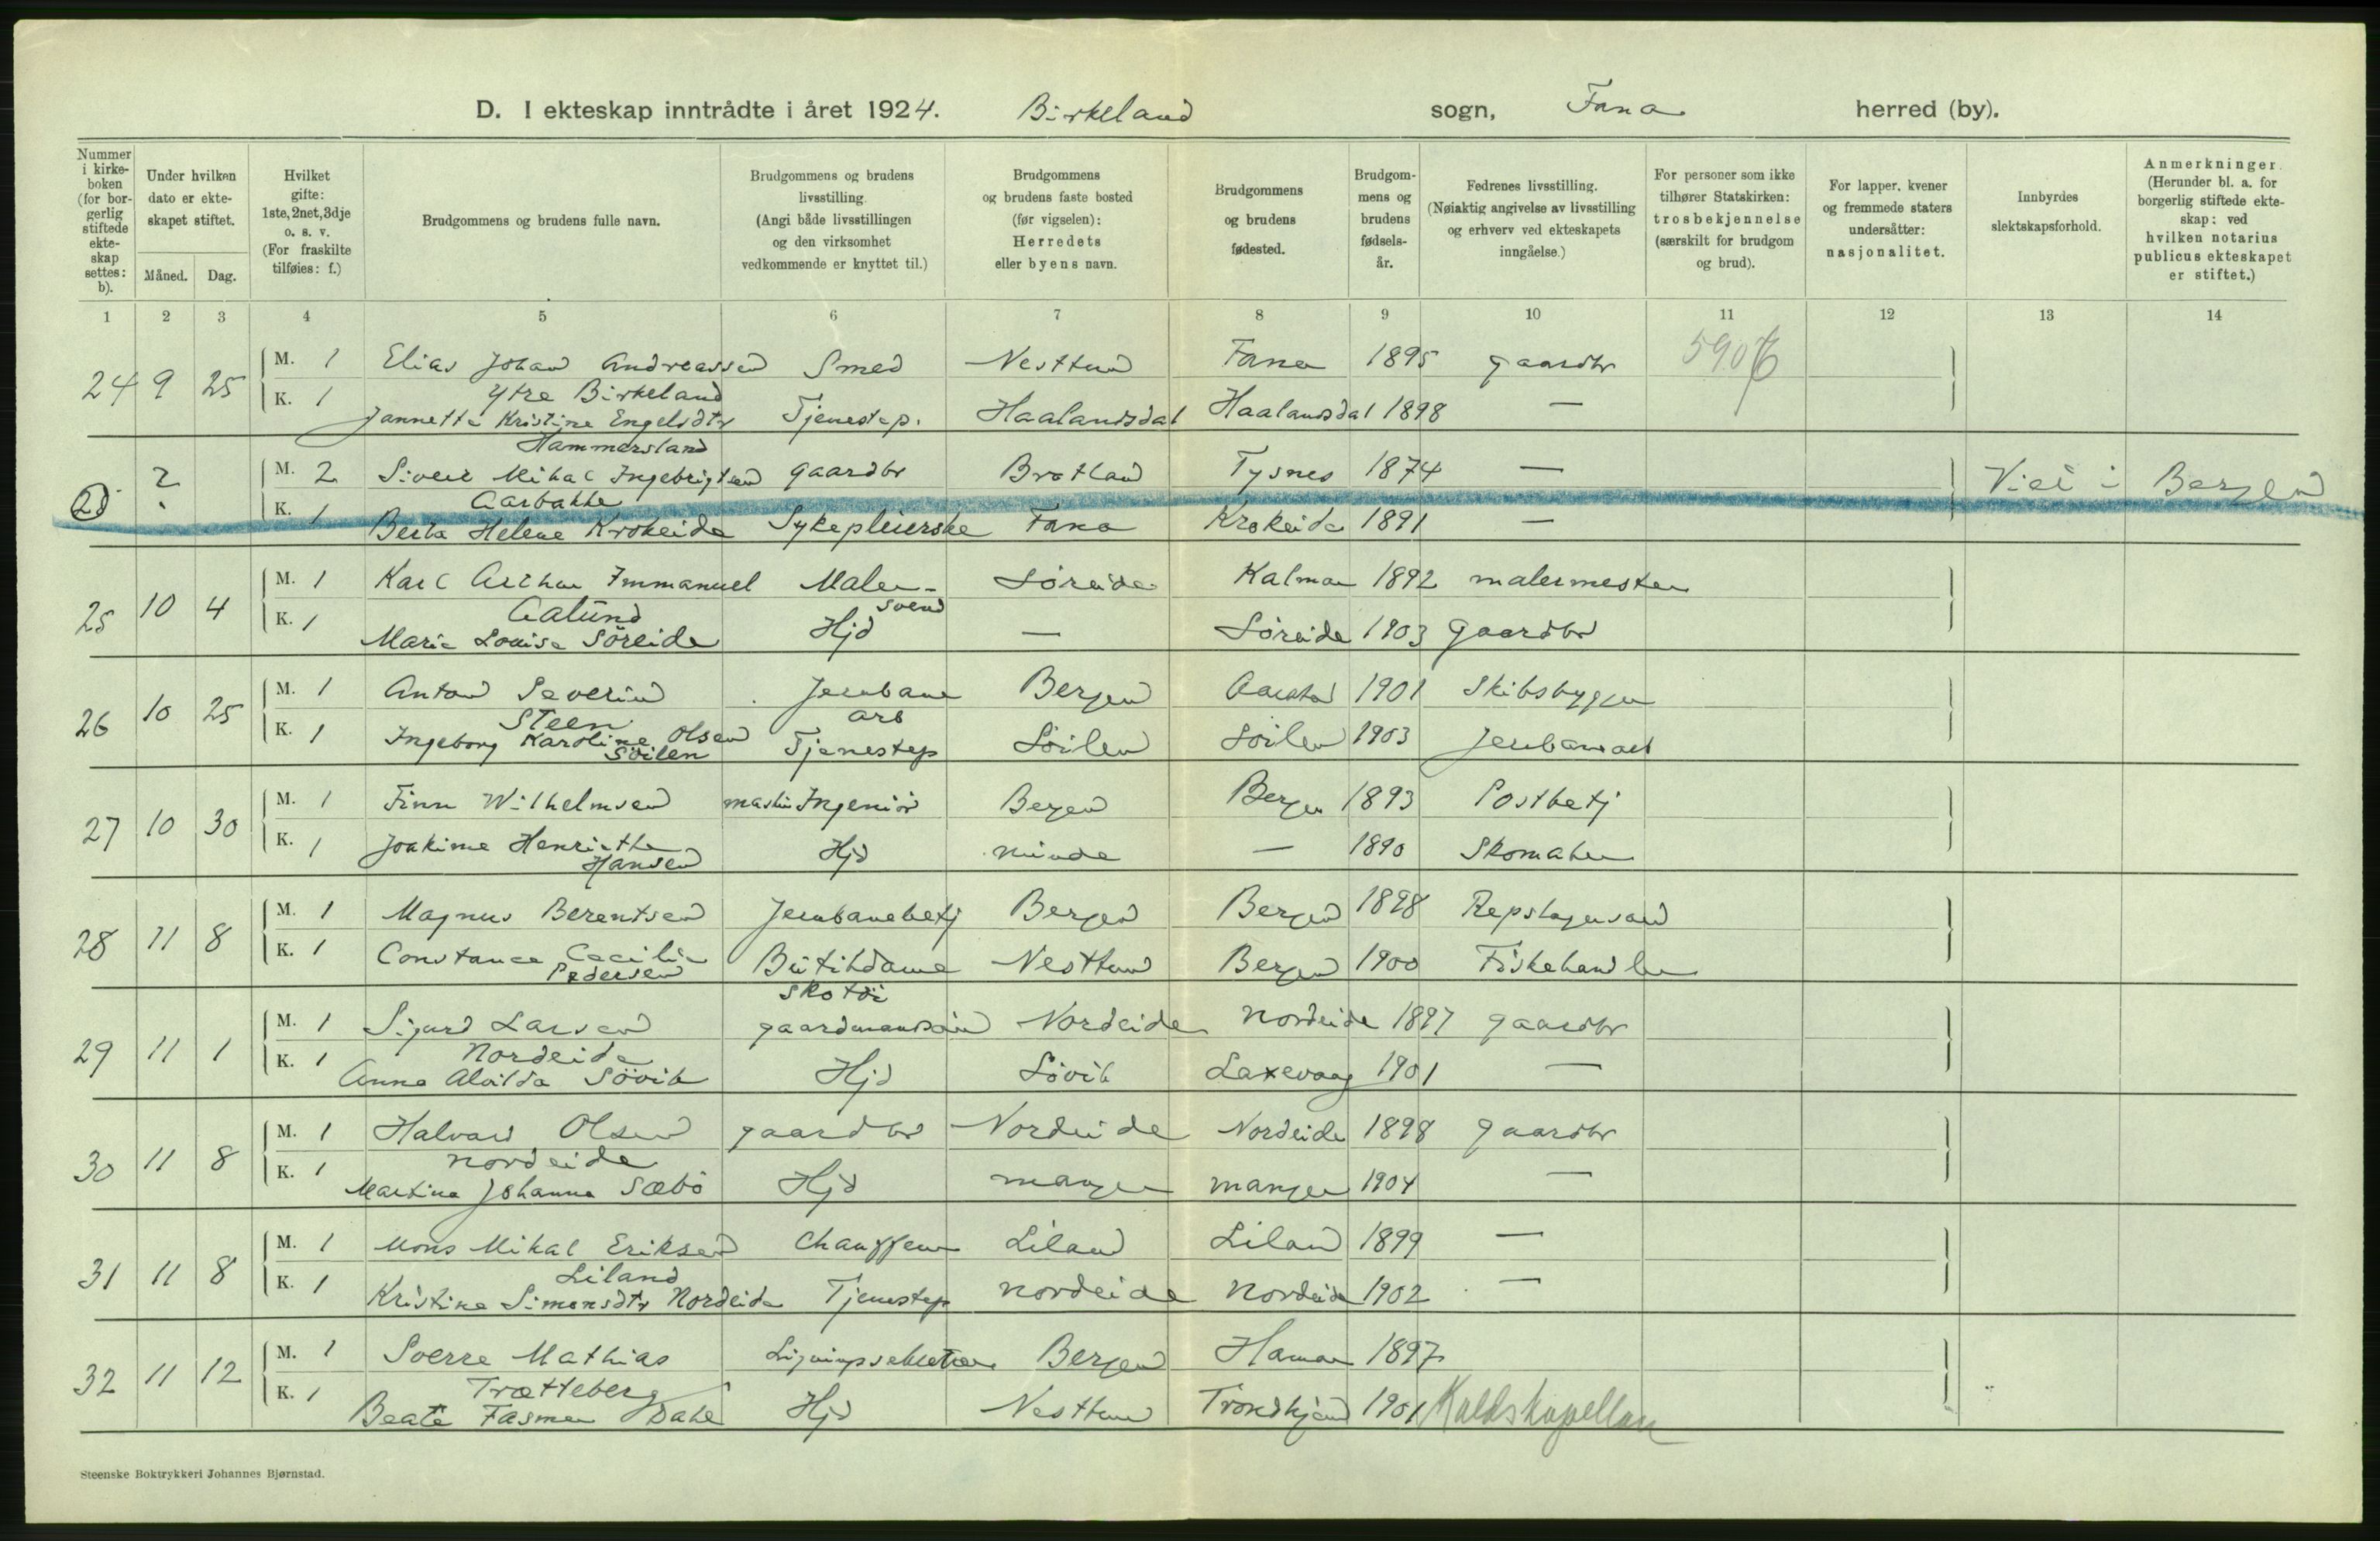 D. I ekteskap inntrådte i året 1924. Birkeland sogn, Fana herred (by).
Nummer i kirkeboken (for borgerlig stiftede ekteskap settes: b).
Under hvilken dato er ekteskapet stiftet.
Måned. Dag.
Hvilket gifte: 1ste, 2net, 3dje o. s. v. (For fraskilte tilføies: f.)
Brudgommens og brudens fulle navn.
Brudgommens og brudens livsstilling. (Angi både livsstillingen og den virksomhet vedkommende er knyttet til.)
Brudgommens og brudens faste bosted (før vigselen): Herredets eller byens navn.
Brudgommens og brudens fødested.
Brudgommens og brudens fødselsår.
Fedrenes livsstilling. (Nøiaktig angivelse av livsstilling og erhverv ved ekteskapets inngåelse.)
For personer som ikke tilhører Statskirken: trosbekjennelse (særskilt for brudgom og brud).
For lapper, kvener og fremmede staters undersåtter: nasjonalitet.
Innbyrdes slektskapsforhold.
Anmerkninger. (Herunder bl. a. for borgerlig stiftede ekteskap: ved hvilken notarius publicus ekteskapet er stiftet.)
1 2 3 4 5 6 7 8 9 10 11 12 13 14
24 9 25 M. 1 Elias Johan Andreassen Smed Nesttun Fana 1895 gaardbr
Ytre Birkeland
K. 1 Jannette Kristine Engelsdtr Tjenestep. Haalandsdal Haalandsdal 1898 —
Hammersland
? M. 2 Siver Mikal Ingebrigtsen gaardbr Bratland Tysnes 1874 — Viet i Bergen
Aarbakke
K. 1 Berta Helene Krokeide Sykepleierske Fana Krokeide 1891 —
25 10 4 M. 1 Karl Arthur Immanuel Maler- Søreide Kalmar 1892 malermester
Aalund svend
K. 1 Marie Louise Söreide Hjd — Søreide 1903 Gaardbr
26 10 25 M. 1 Anton Severin Jernbane Bergen Aarstad 1901 Skibsbygger
Steen arb
K. 1 Ingeborg Karoline Olsen Tjenestep Söilen Söilen 1903 Jernbanearb
Söilen
27 10 30 M. 1 Finn Wilhelmsen maskin Ingeniör Bergen Bergen 1893 Postbetj
K. 1 Joakime Henriethe Hjd minde — 1890 Skomaker
Hansen
28 11 8 M. 1 Magnus Berentsen Jernbanebetj Bergen Bergen 1898 Repslagersvend
K. 1 Constance Cecilie Butikdame Nesttun Bergen 1900 Fiskehandler
Pedersen skotöi
29 11 1 M. 1 Sigurd Larsen gaardmandssön Nordeide Nordeide 1897 gaardbr
Nordeide
K. 1 Anna Alvilda Sövik Hjd Sövik Laxevaag 1901 —
30 11 8 M. 1 Halvard Olsen gaardbr Nordeide Nordeide 1898 gaardbr
Nordeide
K. 1 Martine Johanna Sæbö Hjd manger manger 1904 —
31 11 8 M. 1 Mons Mikal Eriksen Chauffeur Liland Liland 1899 —
Liland
K. 1 Kristine Simonsdtr Nordeide Tjenestep Nordeide Nordeide 1902 —
32 11 12 M. 1 Sverre Mathias Ligningssekretær Bergen Hamar 1897
Trætteberg
K. 1 Beate Fasmer Dahl Hjd Nesttun Trondhjem 1901 Kaldskapellan
Steenske Boktrykkeri Johannes Bjørnstad.